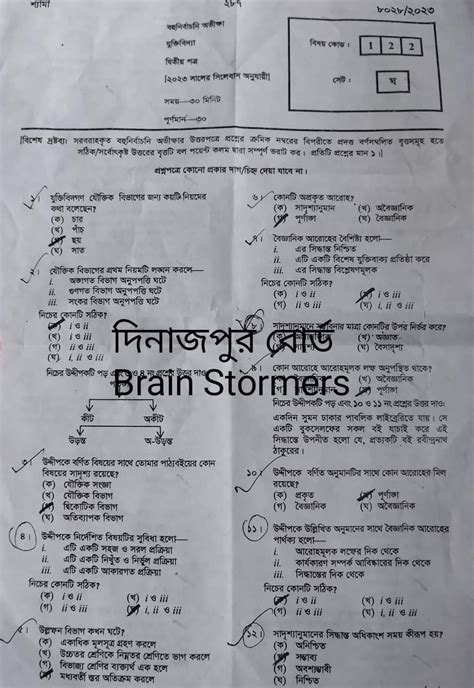 শ্যামা
২৮৭
৮০২৮/২০২৩
বহুনির্বাচনি অভীক্ষা
যুক্তিবিদ্যা
দ্বিতীয় পত্র
[২০২৩ সালের সিলেবাস অনুযায়ী]
সময়—৩০ মিনিট
পূর্ণমান—৩০
বিষয় কোড : 1 2 2
সেট : ঘ
[বিশেষ দ্রষ্টব্য: সরবরাহকৃত বহুনির্বাচনি অভীক্ষার উত্তরপত্রে প্রশ্নের ক্রমিক নম্বরের বিপরীতে প্রদত্ত বর্ণসম্বলিত বৃত্তসমূহ হতে
সঠিক/সর্বোৎকৃষ্ট উত্তরের বৃত্তটি বল পয়েন্ট কলম দ্বারা সম্পূর্ণ ভরাট কর। প্রতিটি প্রশ্নের মান ১।]
প্রশ্নপত্রে কোনো প্রকার দাগ/চিহ্ন দেয়া যাবে না।
১। যুক্তিবিদগণ যৌক্তিক বিভাগের জন্য কয়টি নিয়মের
কথা বলেছেন?
(ক) চার
(খ) পাঁচ
ছয়
(ঘ) সাত
২। যৌক্তিক বিভাগের প্রথম নিয়মটি লঙ্ঘন করলে—
i. অঙ্গগত বিভাগ অনুপপত্তি ঘটে
ii. গুণগত বিভাগ অনুপপত্তি ঘটে
iii. সংকর বিভাগ অনুপপত্তি ঘটে
নিচের কোনটি সঠিক?
i ও ii
(খ) i ও iii
(গ) ii ও iii
(ঘ) i, ii ও iii
নিচের উদ্দীপকটি পড় এবং ৩ ও ৪ নং প্রশ্নের উত্তর দাও:
কীট অকীট
উড়ন্ত অ-উড়ন্ত
৩। উদ্দীপকে বর্ণিত বিষয়ের সাথে তোমার পাঠ্যবইয়ের কোন
বিষয়ের সাদৃশ্য রয়েছে?
(ক) যৌক্তিক সংজ্ঞা
(খ) যৌক্তিক বিভাগ
দ্বিকোটিক বিভাগ
(ঘ) অতিব্যাপক বিভাগ
৪। উদ্দীপকে নির্দেশিত বিষয়টির সুবিধা হলো—
i. এটি একটি সহজ ও সরল প্রক্রিয়া
ii. এটি একটি নিখুঁত ও নির্ভুল প্রক্রিয়া
iii. এটি একটি আকারগত প্রক্রিয়া
নিচের কোনটি সঠিক?
(ক) i ও ii (খ) i ও iii
(গ) ii ও iii i, ii ও iii
৫। উল্লম্ফন বিভাগ কখন ঘটে?
(ক) একাধিক মূলসূত্র গ্রহণ করলে
(খ) উচ্চতর শ্রেণিকে নিম্নতর শ্রেণিতে ভাগ করলে
(গ) বিভাজ্য শ্রেণির ব্যক্ত্যর্থ এক হলে
মধ্যবর্তী স্তর অতিক্রম করলে
৬। কোনটি অপ্রকৃত আরোহ?
(ক) সাদৃশ্যানুমান (খ) অবৈজ্ঞানিক
পূর্ণাঙ্গ (ঘ) বৈজ্ঞানিক
৭। বৈজ্ঞানিক আরোহের বৈশিষ্ট্য হলো—
i. এর সিদ্ধান্ত নিশ্চিত
ii. এটি একটি বিশেষ যুক্তিবাক্য প্রতিষ্ঠা করে
iii. এর সিদ্ধান্ত বিশ্লেষণমূলক
নিচের কোনটি সঠিক?
(ক) i ও ii i ও iii
(গ) ii ও iii (ঘ) i, ii ও iii
৮। সাদৃশ্যানুমানে সম্ভাবনার মাত্রা কোনটির উপর নির্ভর করে?
(খ) অজ্ঞাত
(ঘ) বৈসাদৃশ্য
দিনাজপুর বোর্ড
Brain Stormers
৯। কোন আরোহে আরোহমূলক লম্ফ অনুপস্থিত থাকে?
নিচের উদ্দীপকটি পড় এবং ১০ ও ১১ নং প্রশ্নের উত্তর দাও:
একদিন সুমন ঢাকার পাবলিক লাইব্রেরিতে যায়। সে
একটি বুকসেলফের সকল বই যাচাই করে এই
সিদ্ধান্তে উপনীত হলো যে, প্রত্যেকটি বই রবীন্দ্রনাথ
ঠাকুরের।
১০। উদ্দীপকে বর্ণিত অনুমানটির সাথে কোন আরোহের মিল
রয়েছে?
(ক) প্রকৃত পূর্ণাঙ্গ
(গ) বৈজ্ঞানিক (ঘ) অবৈজ্ঞানিক
১১। উদ্দীপকে উল্লিখিত অনুমানের সাথে বৈজ্ঞানিক আরোহের
পার্থক্য হলো—
i. আরোহমূলক লম্ফের দিক থেকে
ii. কার্যকারণ সম্পর্ক আবিষ্কারের দিক থেকে
iii. সিদ্ধান্তের দিক থেকে
নিচের কোনটি সঠিক?
i ও ii (খ) i ও iii
(গ) ii ও iii (ঘ) i, ii ও iii
১২। সাদৃশ্যানুমানের সিদ্ধান্ত অধিকাংশ সময় কীরূপ হয়?
(ক) অনিশ্চিত
সম্ভাব্য
(গ) অবশ্যম্ভাবী
(ঘ) নিশ্চিত